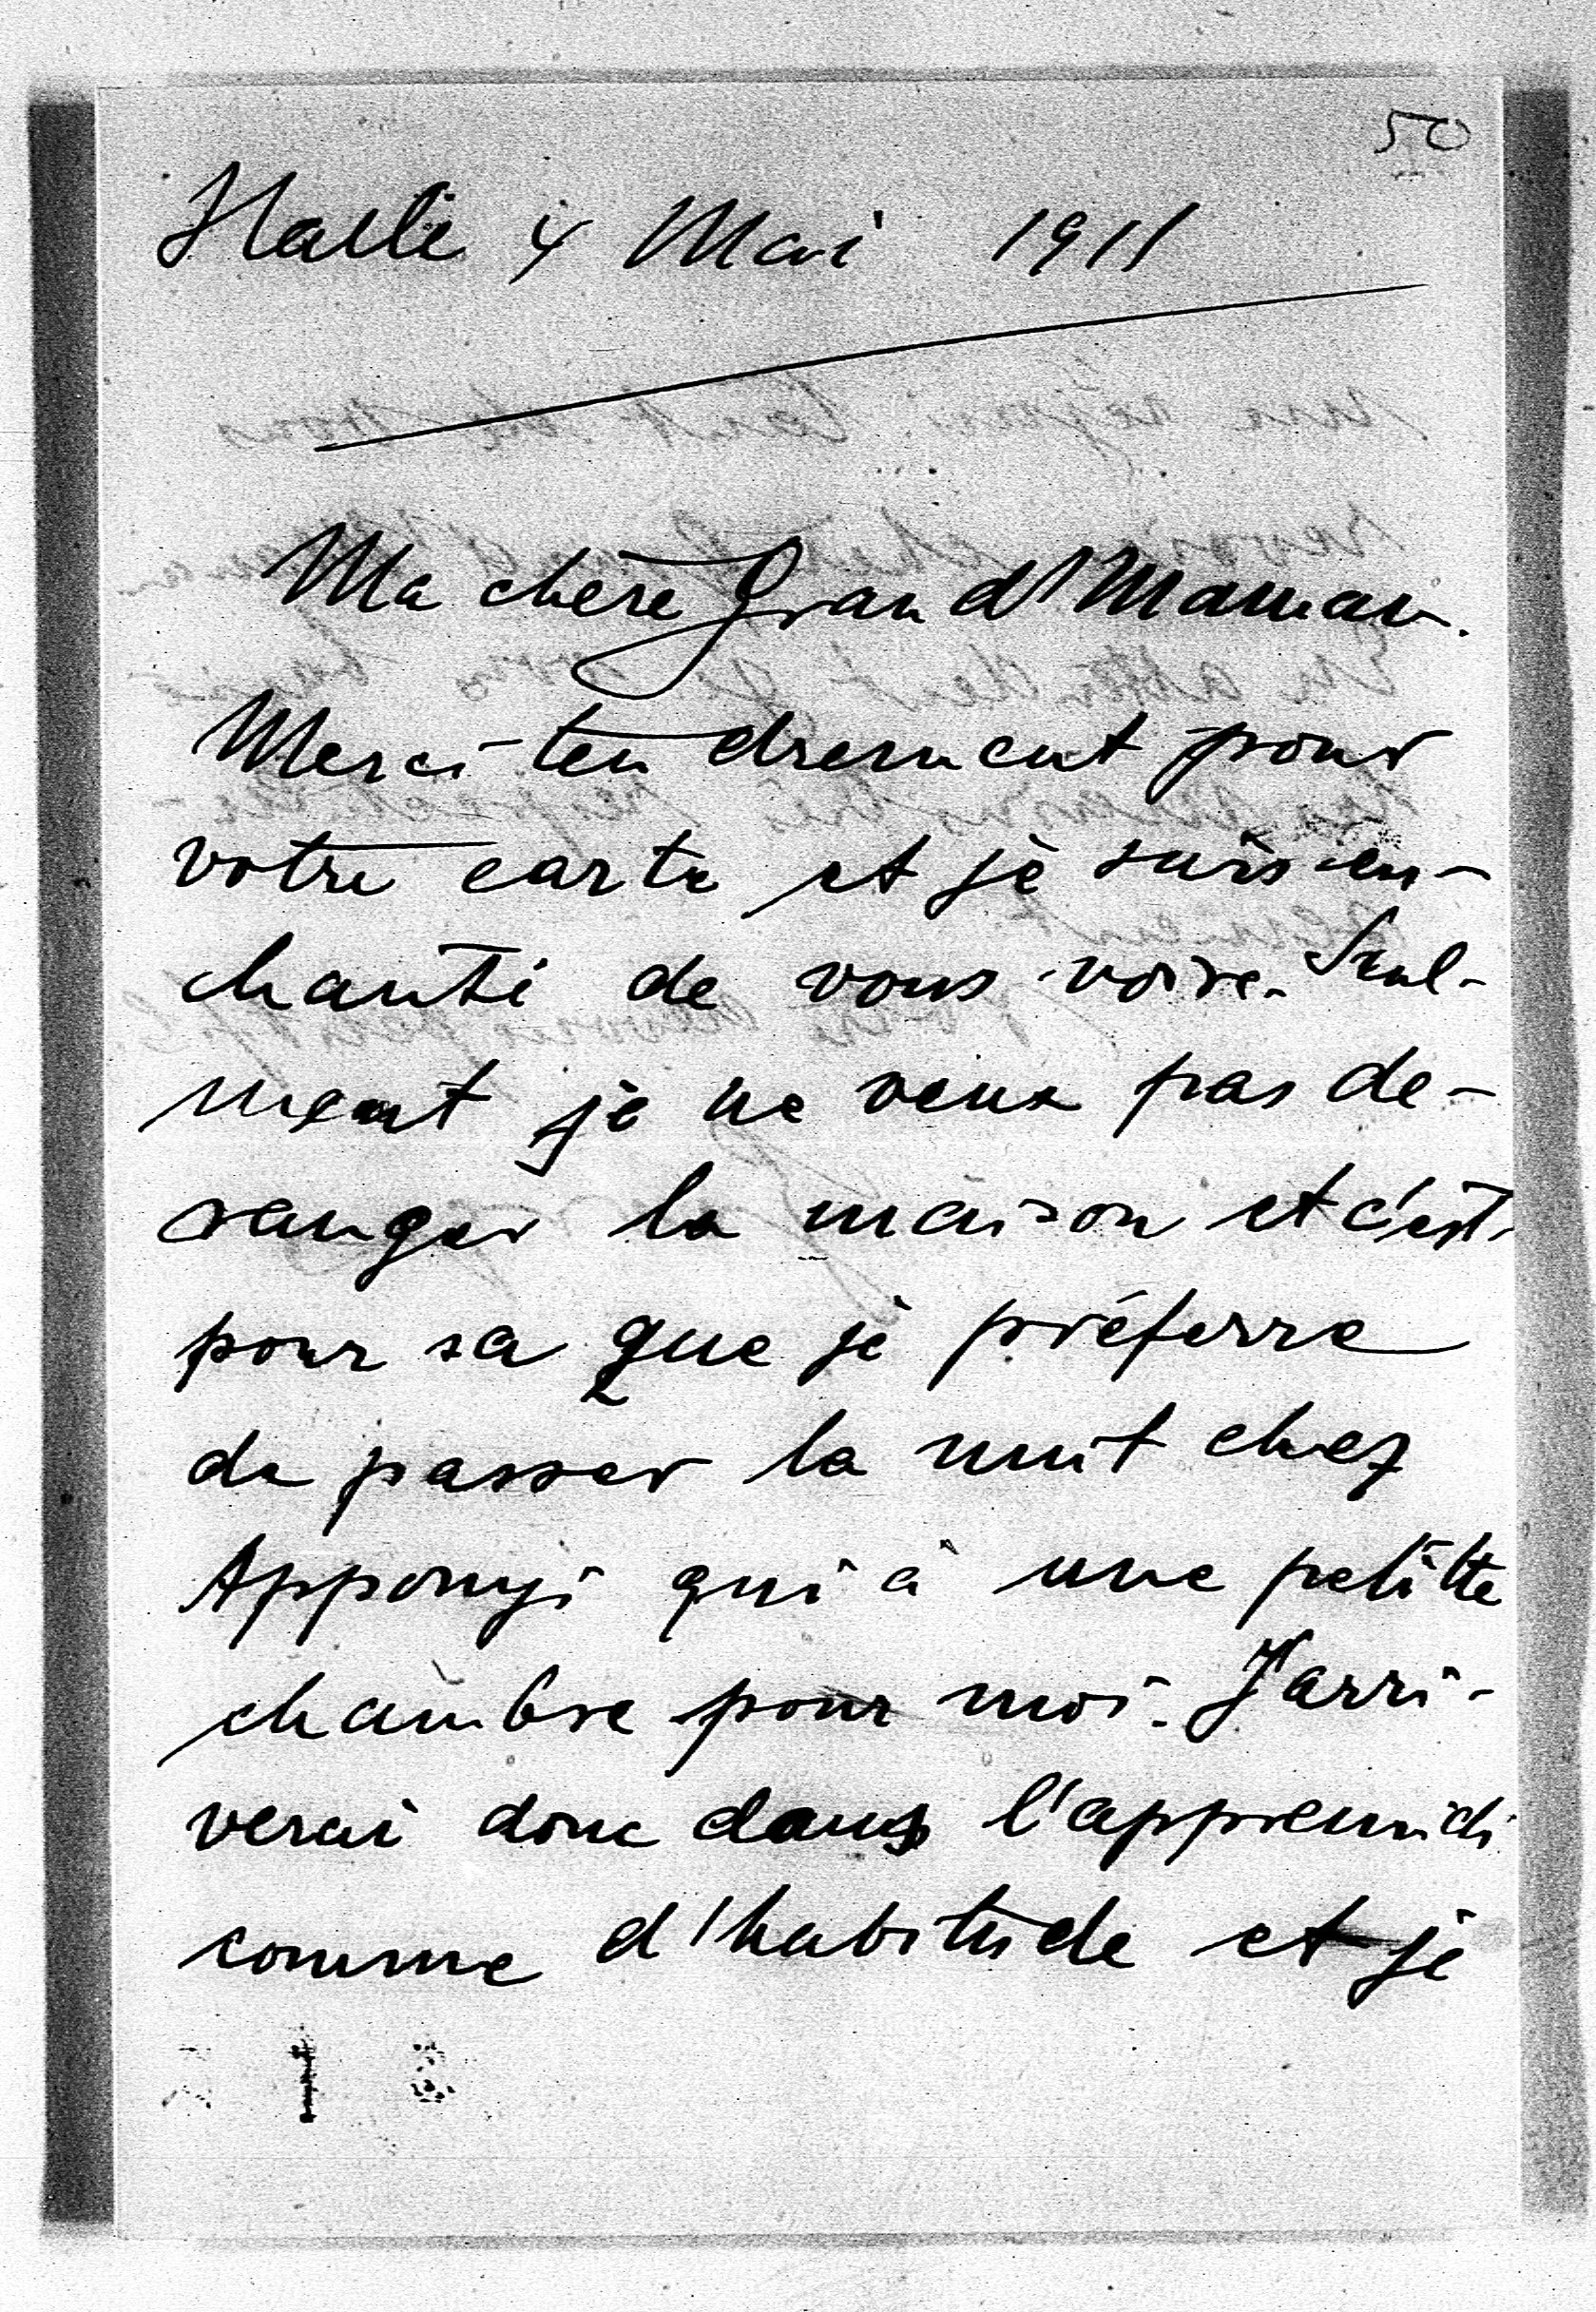 50
Halle 4 Mai 1911
Ma chère Grand'Maman.
Merci tendrement pour
votre carte et je suis en-
chanté de vous voire. Seul-
ment je ne veux pas de-
ranger la maison et c'est
pour sa que je préferre
de passer la nuit chez
Apponyi qui à une petitte
chambre pour moi. J'arri-
verai donc dans l'appremidi
comme d'habitude et je